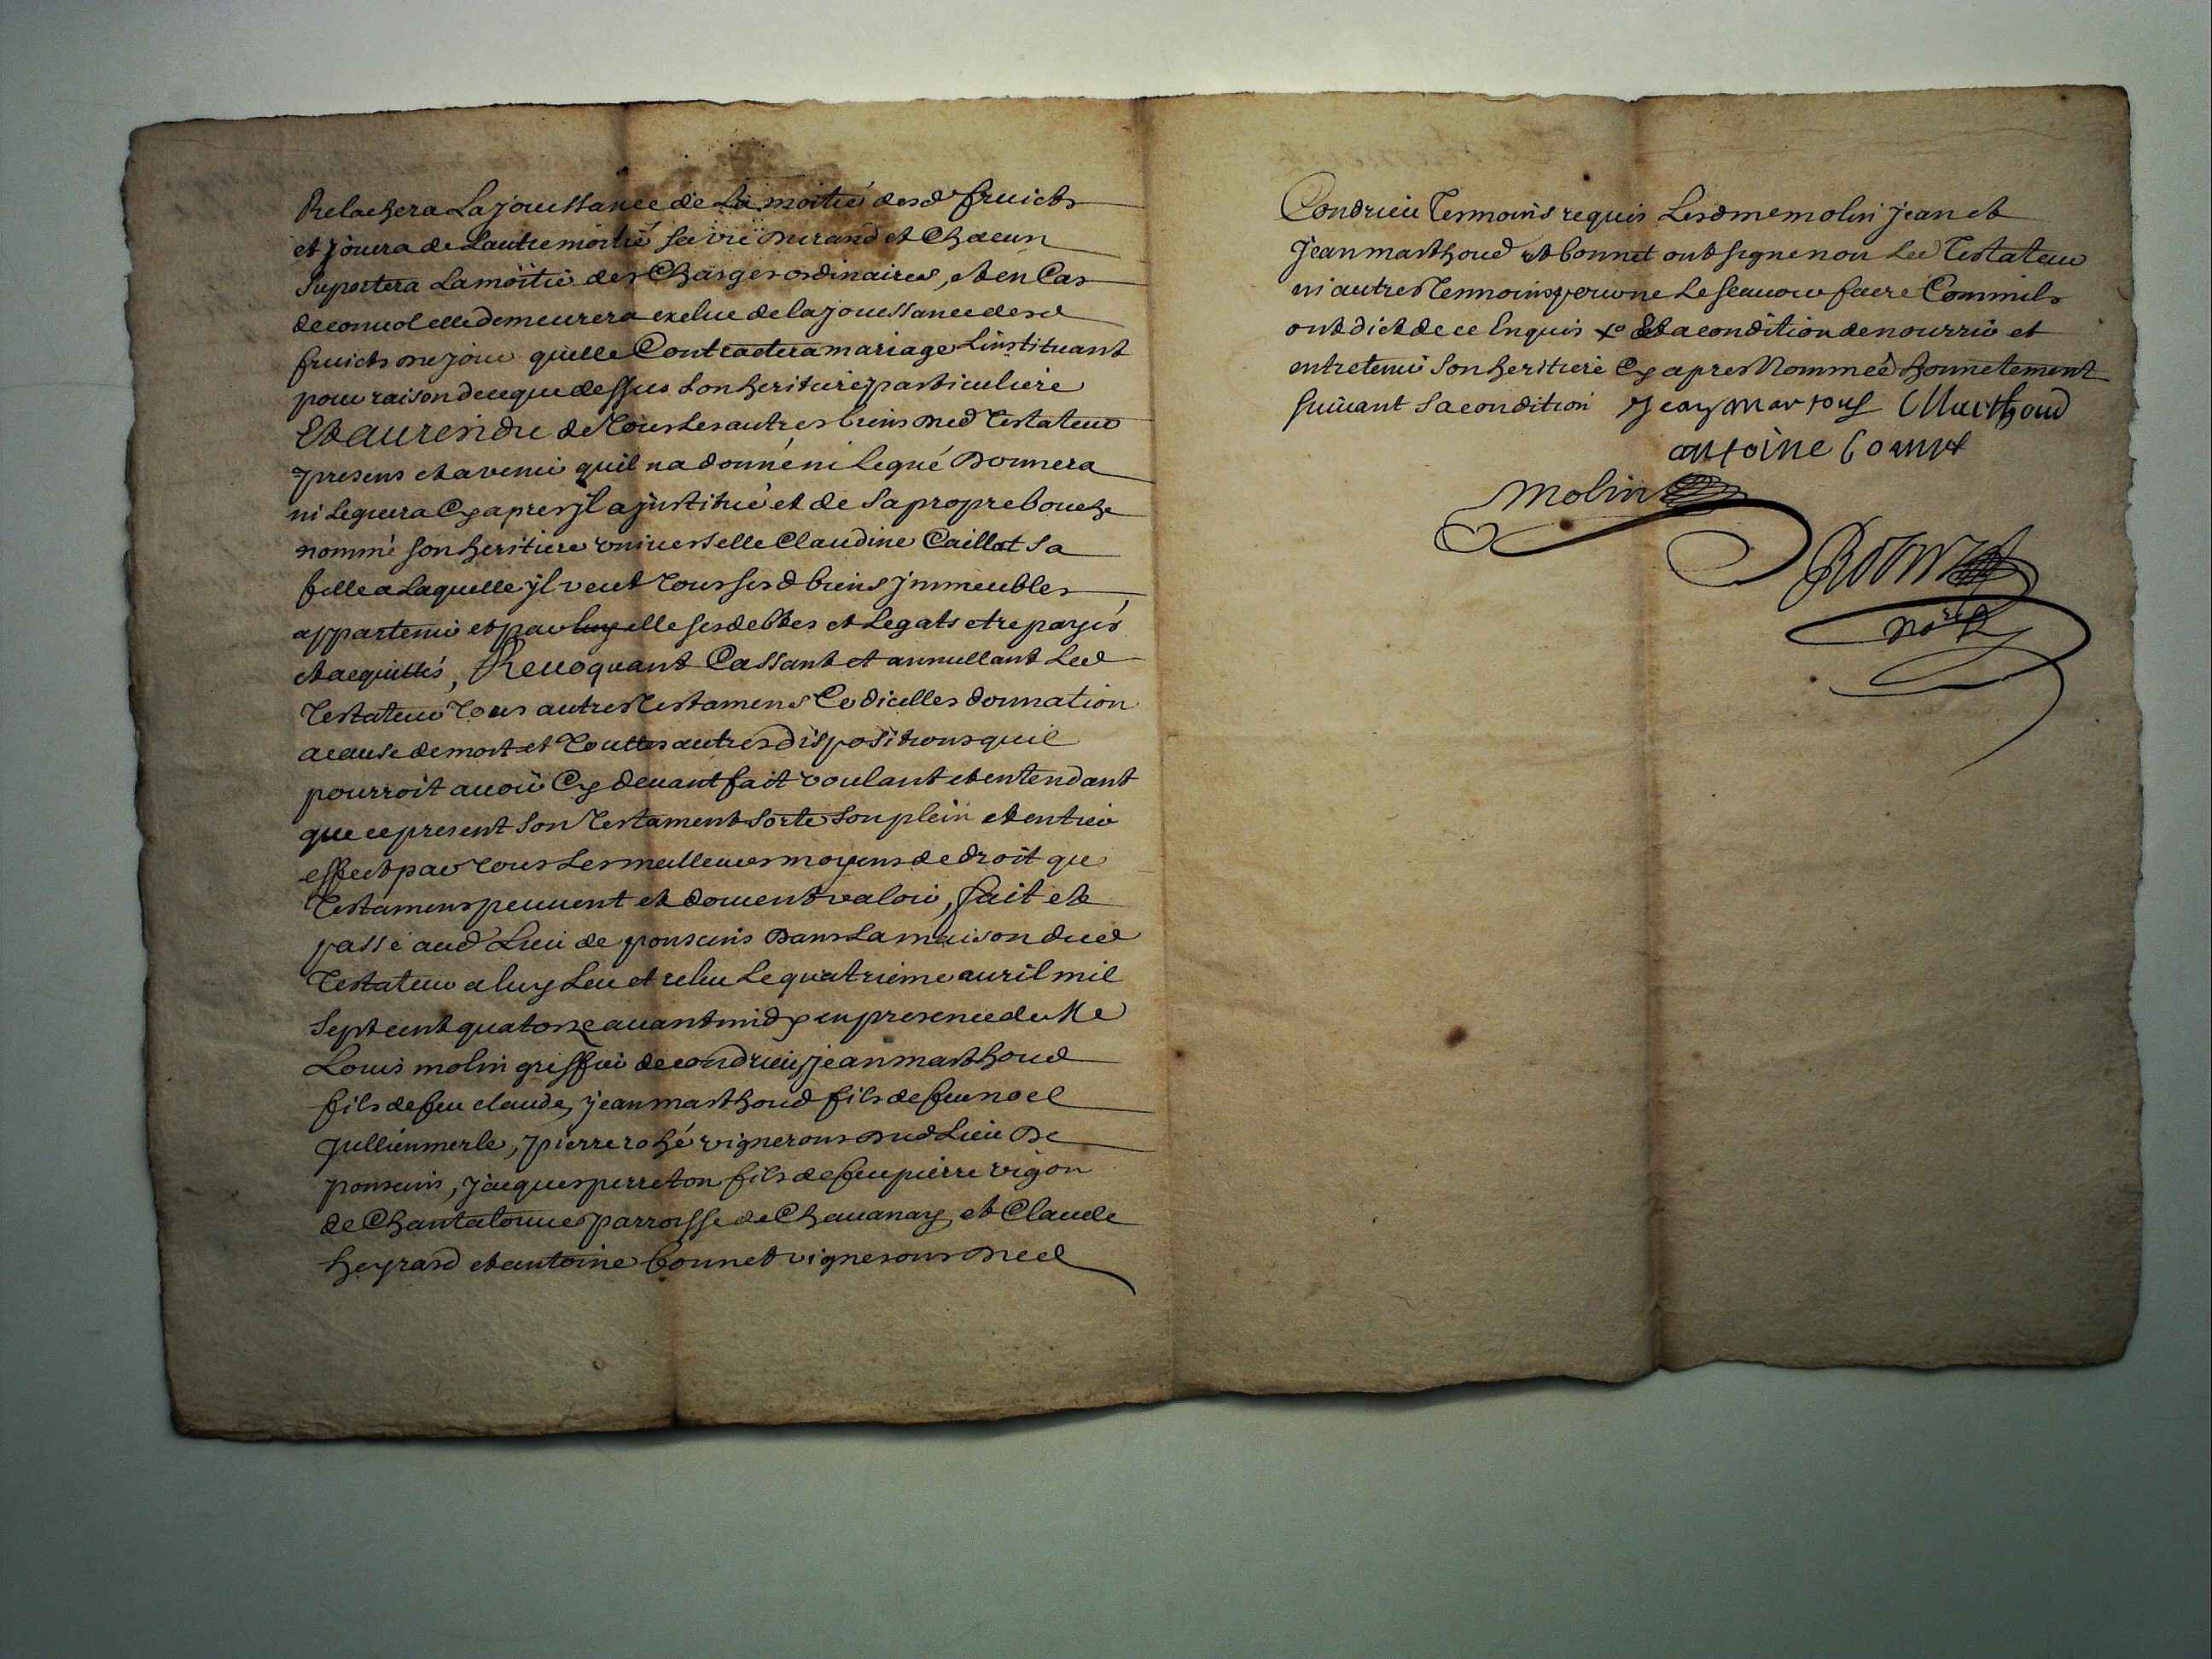 Relachera La jouissance de La moitié desd fruicts
et jouira de Lautre moitié sa vie durand et Chacun
suportera La moitié des Charges ordinaires, et en Cas
de conuol elle demeurera exclue de la jouissance desd
fruicts du jour quelle Contractera mariage Linstituant
pour raison de ce que dessus son heritiere particuliere
Et au residu de Tous Les autres biens dud Testateur
presens et a venir quil na donné ni Legué donnera
ni Leguera Cy apres jl a jnstitué et de sa propre bouche
nommé son heritiere vniuerselle Claudine Caillat sa
fille a Laquelle jl veut Tous sesd biens jmmeubles
appartenir et par luy elle ses debtes et Legats etre payés
et acquittés, Reuoquant Cassant et annullant Led
Testateur Tous autres Testamens Codicilles donnation
a cause de mort et Touttes autres dispositions quil
pourroit auoir Cy deuant fait voulant et entendant
que ce present son Testament sorte son plein et entier
effect par Tous Les meilleures moyens de droit que
Testamens peuuent et doiuent valoir, fait et
passé aud Lieu de ponsin dans La maison dud
Testateur a luy Leu et releu Le quatrieme auril mil
sept cent quatorze auant midy en presence de Me
Louis molin greffier de condrieu, jean marthoud
fils de feu claude, jean marthoud fils de feu noel
jullien merle, pierre rohé vignerons dud Lieu de
jacques perreton fils de feu pierre vigon
de Chantaloue parroisse de Chauanay et Claude
heyrard et antoine bonnet vignerons dud
Condrieu Tesmoins requis Lesd me molin jean et
jean marthoud et bonnet ont signe non Led Testateur
ni autres Tesmoins pour ne Le scauoir faire Comm ils
ont dict de ce Enquis xo Et a condition de nourrir et
entretenir son heritiere Cy apres Nommeé honnetement
suiuant sa condition jean martous Marthoud
antoine bonnet
molin
nore